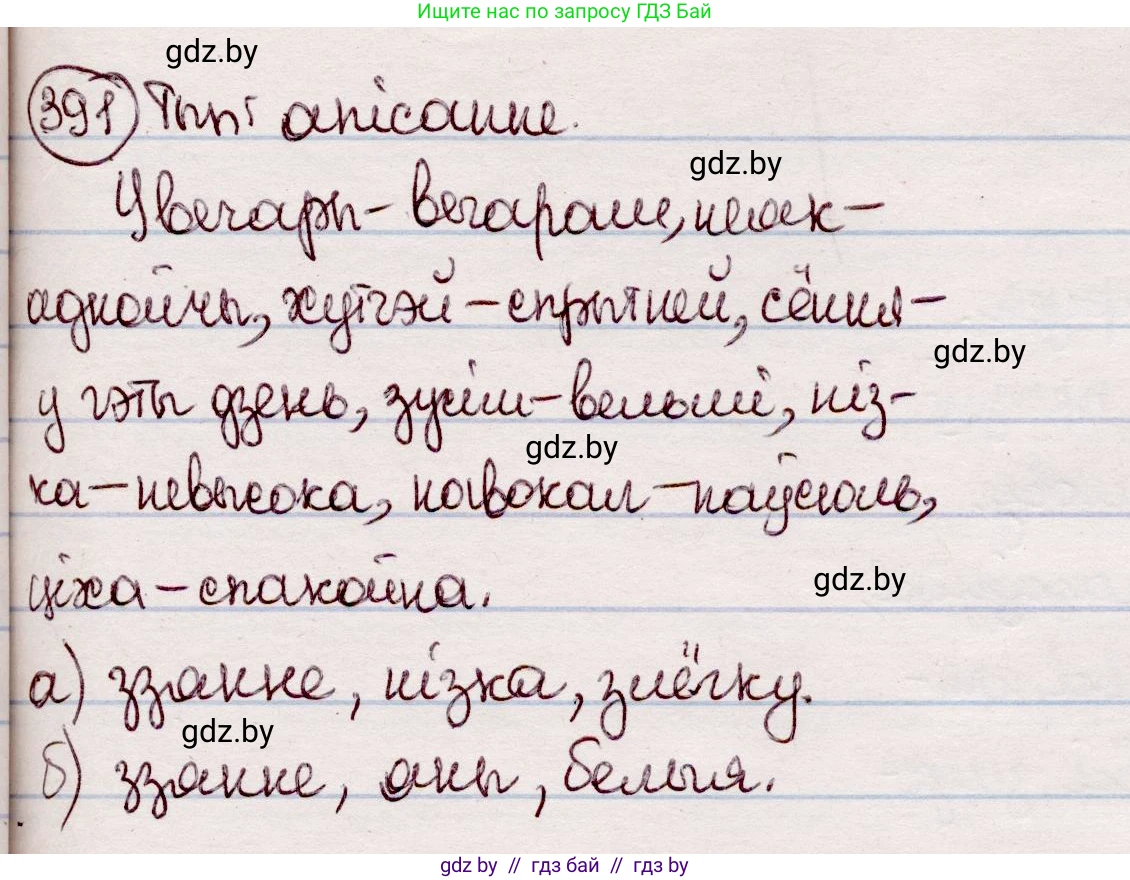 Ищите нас по запросу ГДЗ Бай
gdz.by
391 Тып: апісанне.
gdz.by
Увечары – вечарам, неяк –
аднойчы, хутчэй – спрытней, сёння –
gdz.by
у гэты дзень, зусім – вельмі, ніз-
gdz.by
ка – невысока, навокал – паўсюль,
ціха – спакойна.
gdz.by
а) ззянне, нізка, злёгку.
gdz.by
б) ззянне, яны, белыя.
gdz by // гдз бай // гдз by